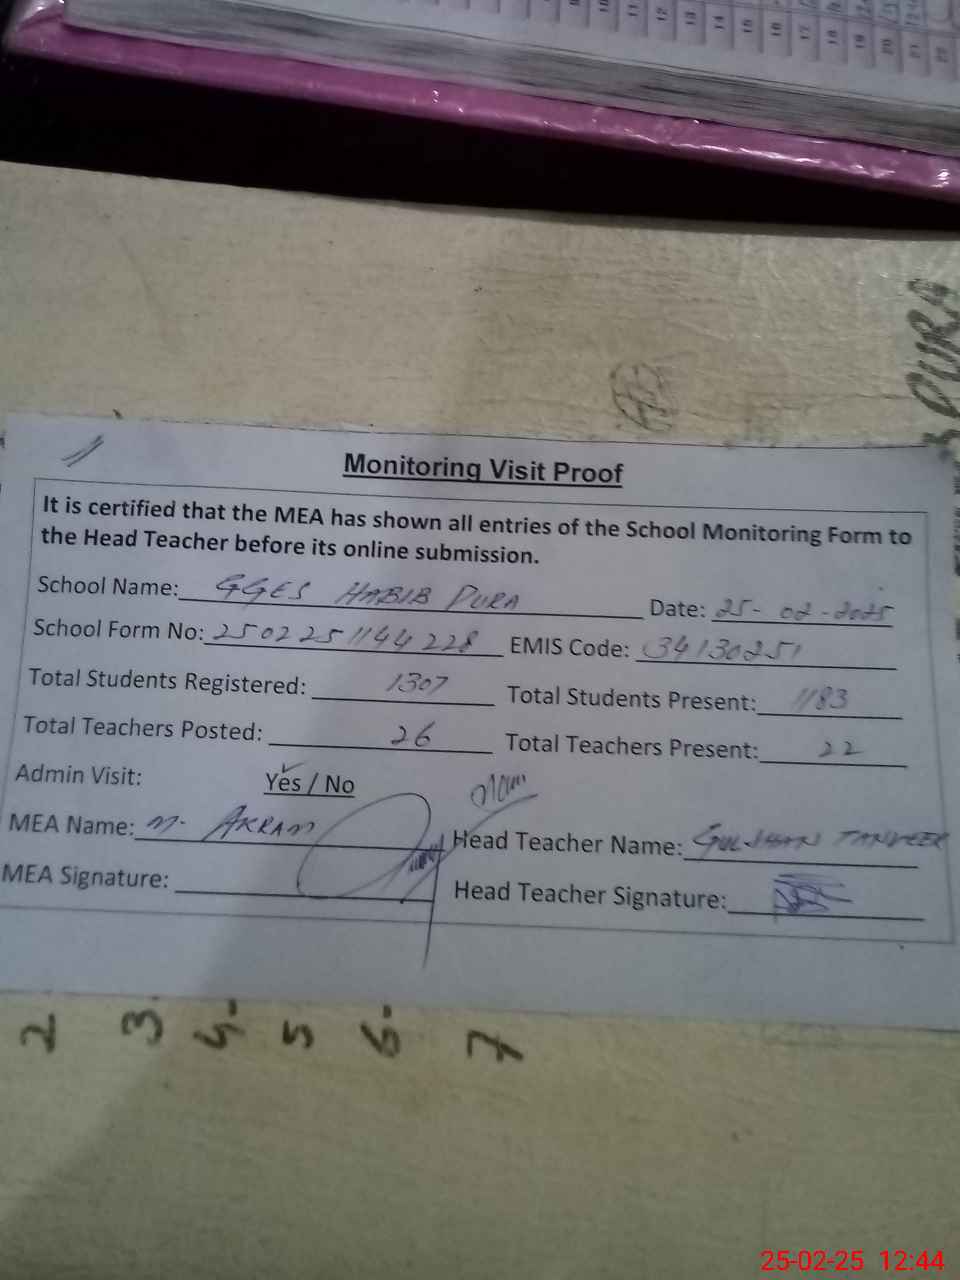 11 12 13 14 15 16 17 18 19 20 21 22
PURA
Monitoring Visit Proof
It is certified that the MEA has shown all entries of the School Monitoring Form to
the Head Teacher before its online submission.
School Name: GGES HABIB PURA Date: 25-02-2025
School Form No: 2502251144228 EMIS Code: 34130251
Total Students Registered: 1307 Total Students Present: 1183
Total Teachers Posted: 26 Total Teachers Present: 22
Admin Visit: Yes / No
MEA Name: M. AKRAM Head Teacher Name: GULSHAN TANVEER
MEA Signature: Head Teacher Signature:
2 3 4 5 6 7
25-02-25 12:44